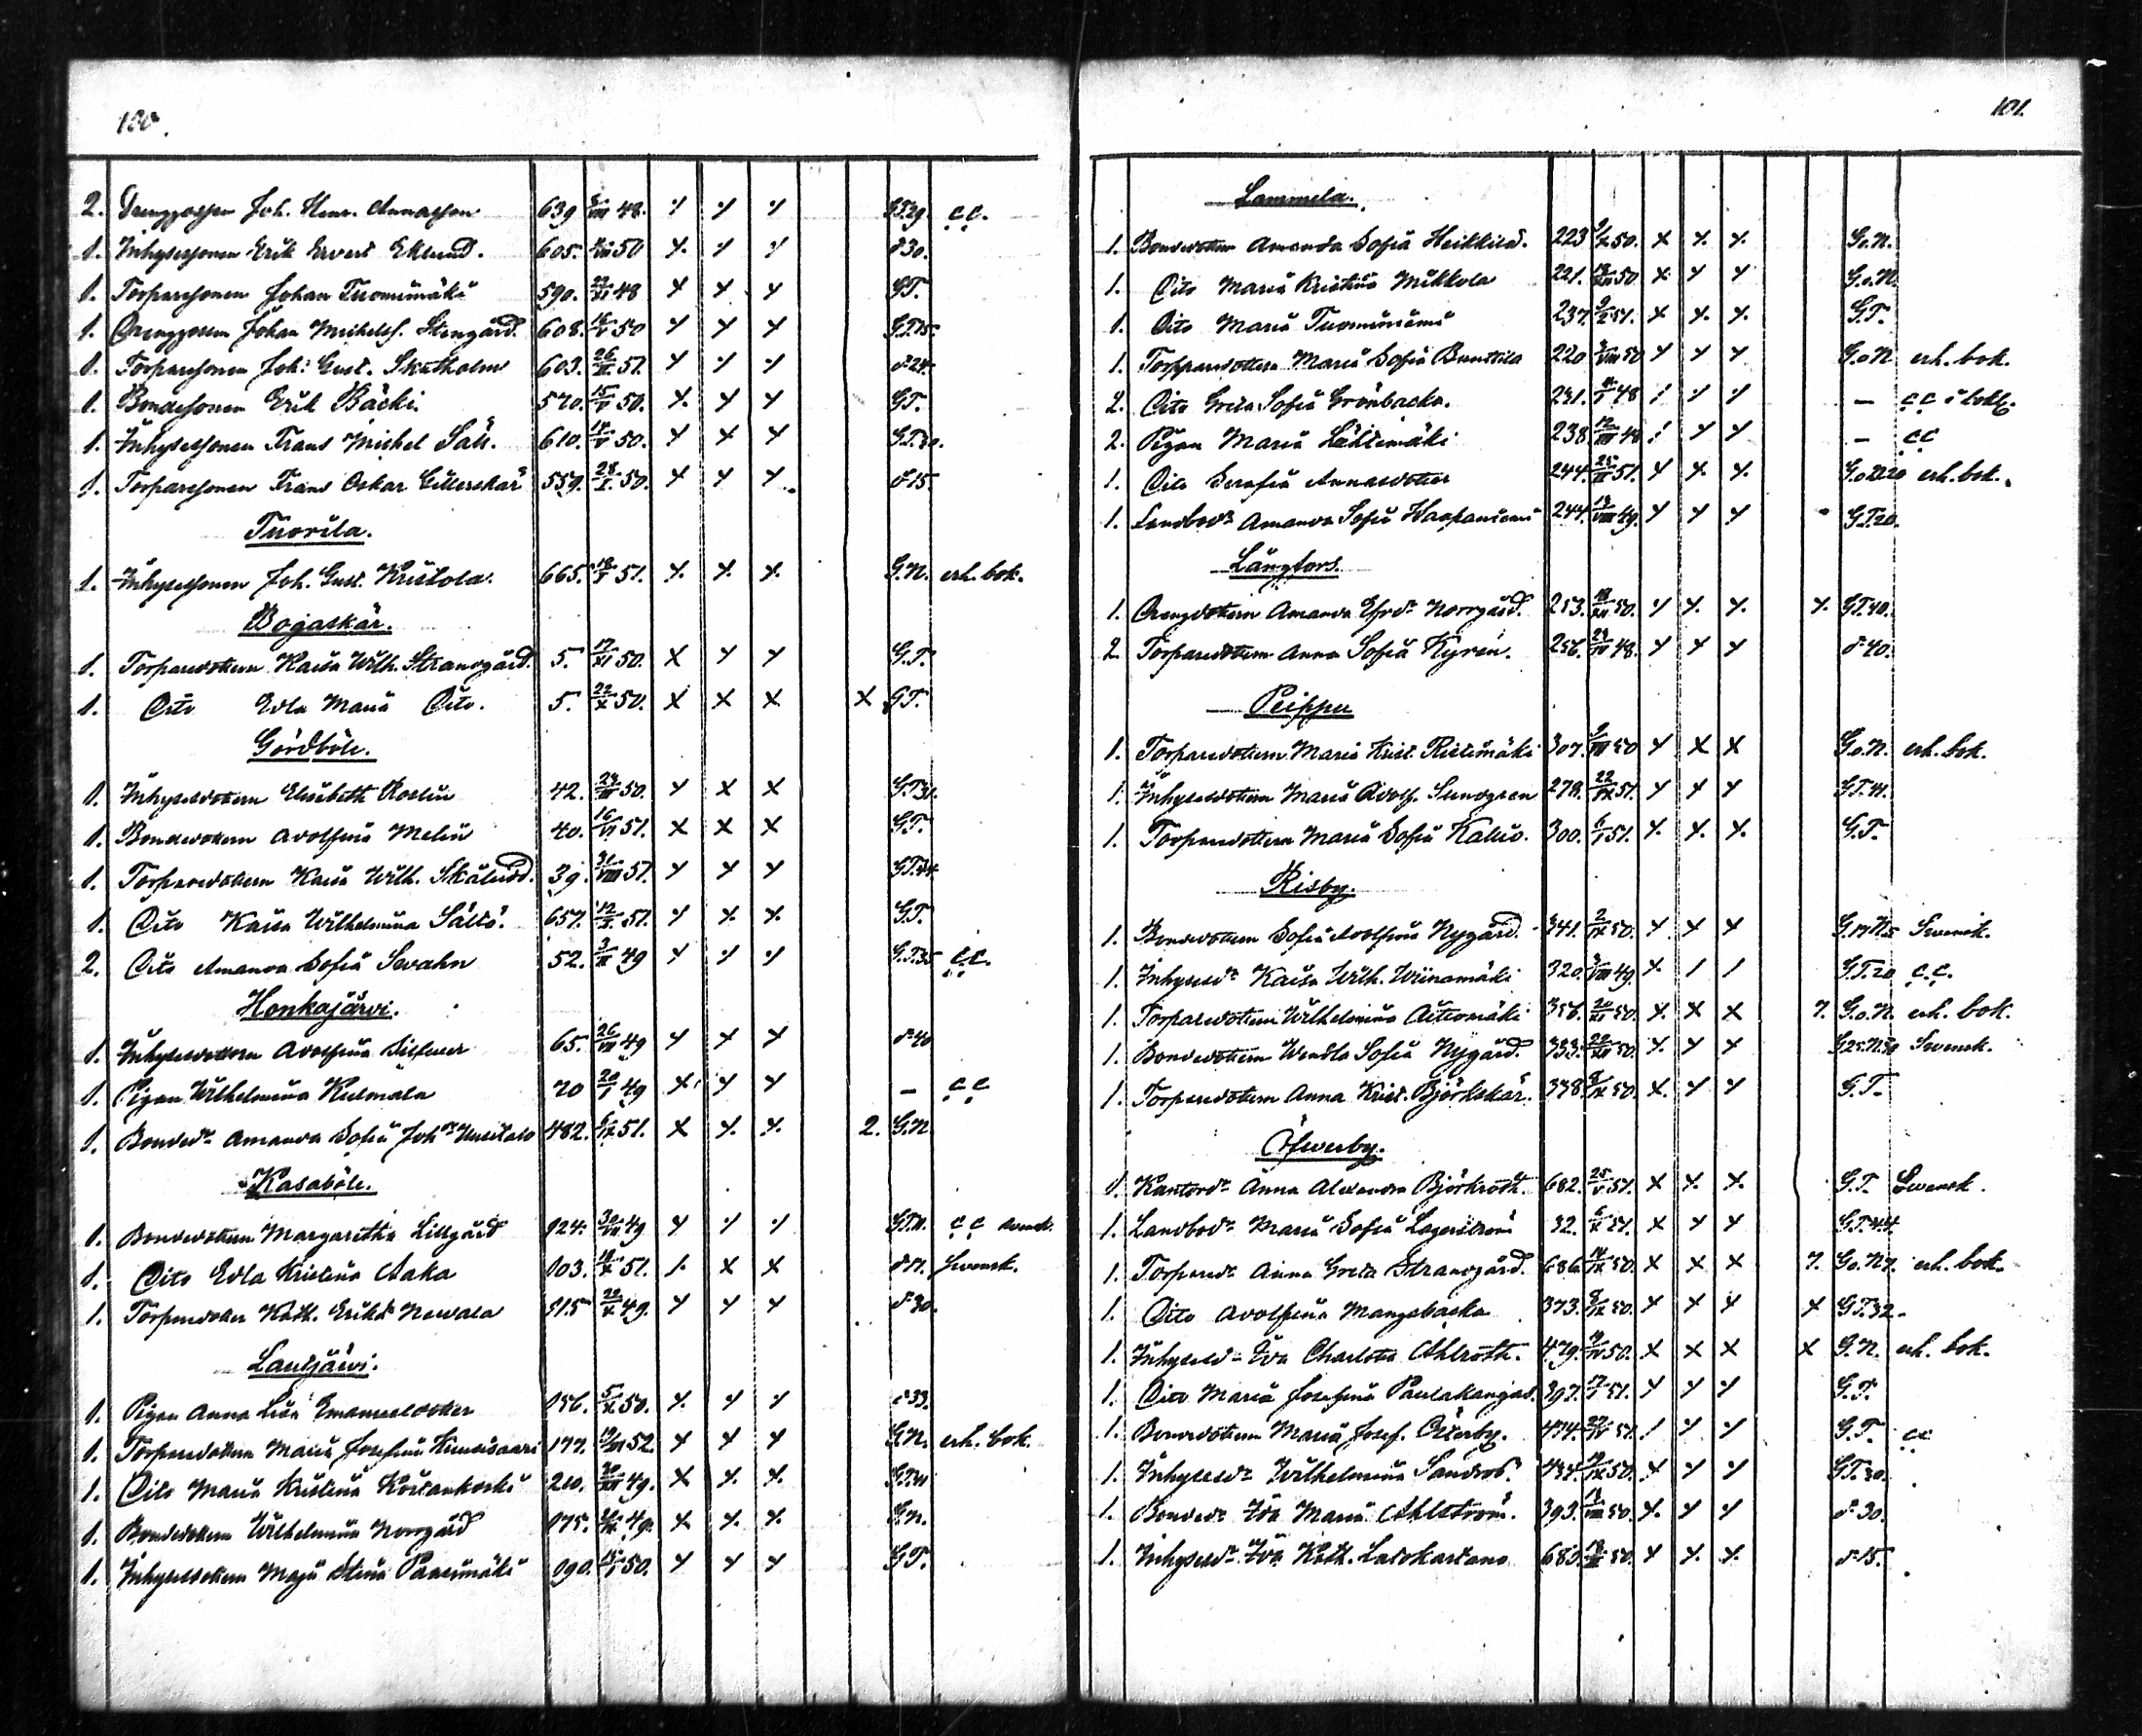 100.
2. Drenggossen Joh. Henr. Annasson 639 48. G.T.29. c.c.
1. Inhysessonen Erik Evert Eklund. 605. 50 d:o 30.
1. Torparesonen Johan Tuomimäki 590. 22/XI 48 G.T.
1. Drenggossen Johan Michelss. Stengård. 608. 16/V 50 G.T.15.
1. Torparesonen Joh: Gust. Skatholm 603. 26 51 d:o 24.
1. Bondesonen Erik Bäcki. 570. 15/V 50. G.T.
1. Inhysessonen Frans Michel Säll. 610. 14/V 50. G.T.30.
1. Torparesonen Frans Oskar Gillerskär 559. 28/X 50. d:o 15.
Tuorila.
1. Inhysessonen Joh. Gust. Kristola. 665. 18 51. G.N. erh. bok.
Bogaskär.
1. Torparedottern Kaisa Wilh. Strandgård. 5. 17/XI 50. G.T.
1. Dito Edla Maria Dito. 5. 22/X 50. X G.T.
Gördböle.
1. Inhysesdottern Elisabeth Roslin 42. 24 50. G.T.31.
1. Bondedottern Adolfina Melin 40. 16/VI 51. G.T.
1. Torparedottern Kaisa Wilh. Skäludd. 39. 31/VIII 51. G.T.44.
1. Dito Kaisa Wilhelmina Sältö. 657. 12/X 51. G.T.
2. Dito Amanda Sofia Swahn 52. 3 49 G.T.35 c.c.
Honkajärvi.
1. Inhysesdottern Adolfina 65. 26 49 d:o 40
1. Pigan Wilhelmina Kulmala 70 20/I 49 – c.c.
1. Bonded:r Amanda Sofia Joh:dr Uusitalo 482. 51. 2. G.N
Kasaböle.
1. Bondedottern Margaretha Lillgård 124. 30 49 G.T.11. c.c. svensk.
1. Dito Edla Kristina Aaka 103. 18/X 51. d:o 11. Svensk.
1. Torparedotter Kath. Eriksd:r Newala 515 22/X 49. d:o 30.
Lautjärvi.
1. Pigan Anna Lisa Emanuelsdotter 156. 5/X 50. d:o 33.
1. Torparedottern Maria Josefina Kiwisaari 177. 52. G.N. erh. bok.
1. Dito Maria Kristina Köstankoski 210. 30 49. G.T.41
1. Bondedottern Wilhelmina Norrgård 175. 49. G.N.
1. Inhysesdottern Maja Stina Paasimäki 190. 15/I 50. G.T.
101.
Lammela.
1. Bondedottern Amanda Sofia Heikkilä. 223 50. G.o.N.
1. Dito Maria Kristina Mikkola 221. 50. G.o.N.
1. Dito Maria Tuominiemi 237. 9/X 51. G.T.
1. Torparedottern Maria Sofia Bunttila 220 VIII 50 G.o.N. erh. bok.
2. Dito Greta Sofia Grönbacka. 231. 48 – c.c. i bokl.
2. Pigan Maria Lähtimäki 238 12 48 – c.c
1. Dito Serafia Annasdotter 244. 25 51. G.o.N.20 erh. bok.
1. Landbod:r Amanda Sofia Haapaniemi 244. 13/VIII 49. G.T.20.
Långfors.
1. Drengdottern Amanda Efrd:r Norrgård. 253. 18 50. G.T.40.
2. Torparedottern Anna Sofia Hyrén. 256. 24 48. d:o 40.
Peippu
1. Torparedottern Maria Krist. Ristimäki 307. 50 G.o.N. erh. bok.
1. Inhysesdottern Maria Adolf. Sundgren 278. 22/IX 51. G.T.41.
1. Torparedottern Maria Sofia Kallio. 300. 6/I 51. G.T.
Risby.
1. Bondedottern Sofia Adolfina Nygård. 341. 2/IX 50. Svensk.
1. Inhysesd:r Kaisa Wilh. Wiinamäki 320. VIII 49. G.T.20 c.c.
1. Torparedottern Wilhelmina Aittomäki 356. 20/XI 50. G.o.N. erh. bok.
1. Bondedottern Wendla Sofia Nygård. 333. 22 50. Svensk.
1. Torparedottern Anna Krist. Björkskär. 338. 8/IX 50. G.T.
Öfwerby.
1. Kantord:r Anna Alexandra Björkroth. 682. 25/V 51. G.T. Svensk.
1. Landbod:r Maria Sofia Lagerström 32. 51. G.T.44.
1. Torpared:r Anna Greta Strandgård. 686. 14/IX 50. G.o.N. erh. bok.
1. Dito Adolfina Mangsbacka 373. 8/IX 50. X G.T.32.
1. Inhysesd:r Eva Charlotta Ahlroth. 479. 50. X G.N. erh. bok.
1. Dito Maria Josefina Paulakangas. 397. 17 51. G.T.
1. Bondedottern Maria Josef. Österby. 474. 51. G.T. cc
1. Inhysesd:r Wilhelmina Sandros. 434. 50. G.T.30.
1. Bonded:r Eva Maria Ahlström. 393. 13/VIII 50. d:o 30.
1. Inhysesd:r Eva Kath. Latokartano 683. 50. d:o 15.